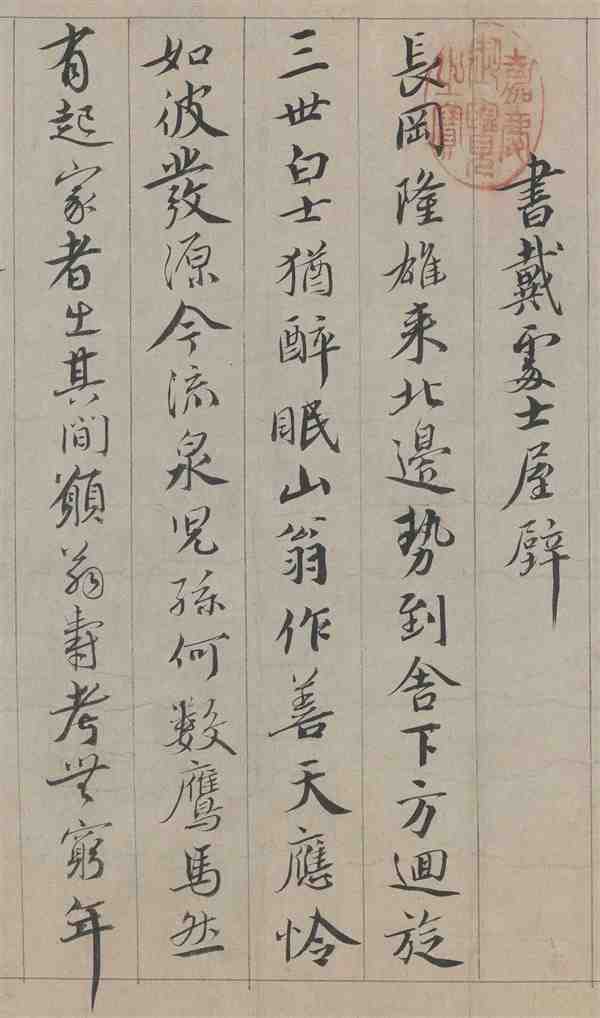 嘉慶
御覽
之寶
書戴處士屋壁
長岡隆雄来北邊勢到舍下方迴旋
三世白士猶醉眠山翁作善天應憐
如彼發源今流泉兒孫何數鷹馬然
有起家者出其間願翁壽考無窮年